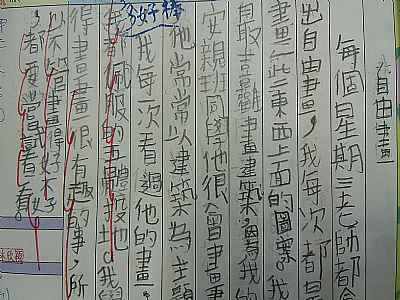 自由畫
每個星期三老師都
出自由畫，我每次都是
畫一些東西上面的圖案。我
最喜歡畫建築，因為我的
安親班同學他很會畫畫
他常常以建築為主題
我每一次看過他的畫，
都佩服的五體投地。我
得畫畫很有趣的事，所
以不管畫得好不好
都要嘗試著看。
好棒